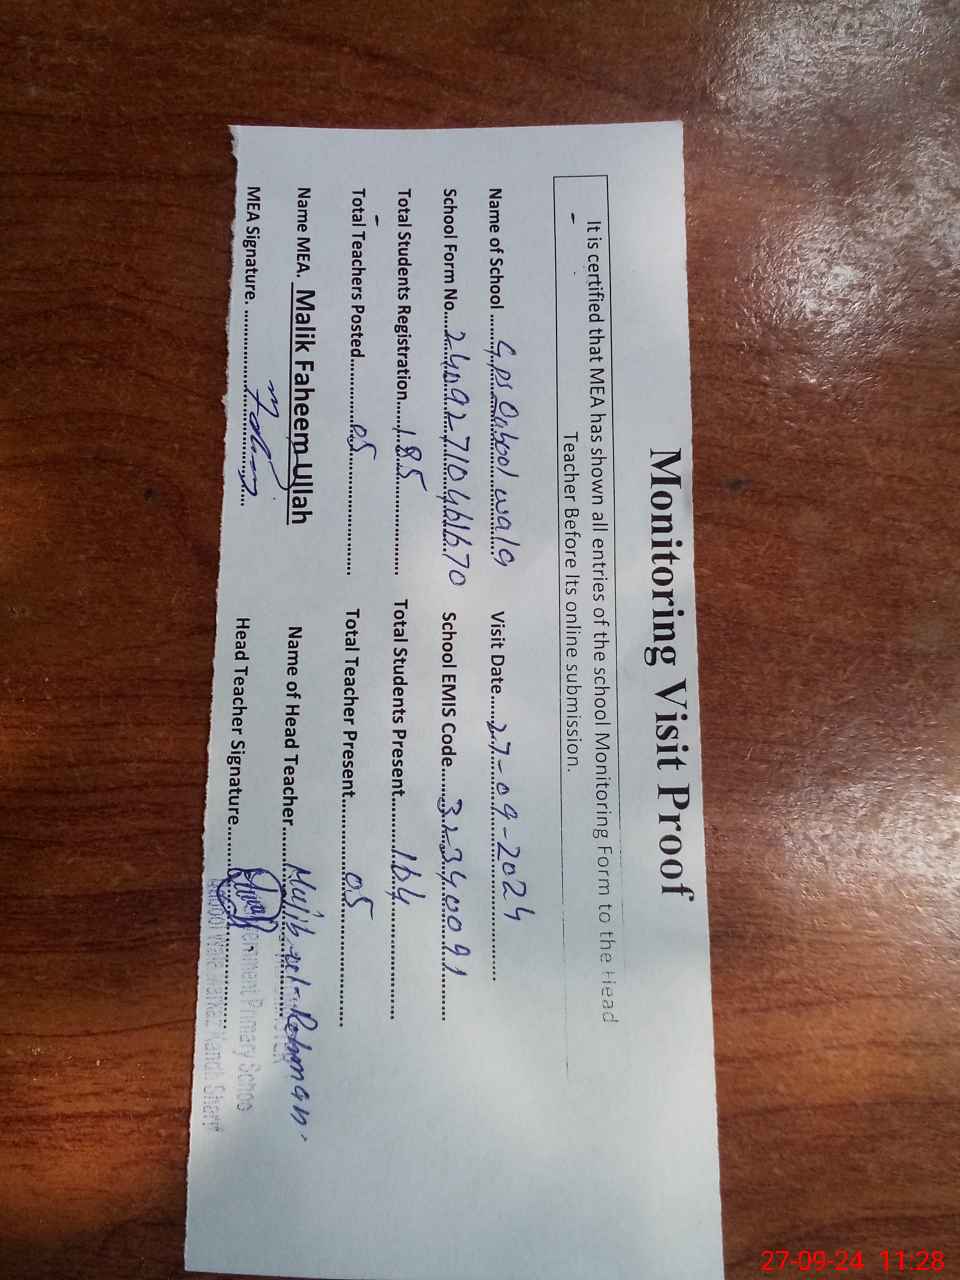 Monitoring Visit Proof
It is certified that MEA has shown all entries of the school Monitoring Form to the Head
Teacher Before Its online submission.
Name of School ......GPS wala Visit Date......27-09-2024............
School Form No....24092710461670 School EMIS Code......32340091......
Total Students Registration......185............ Total Students Present......164............
Total Teachers Posted............05............ Total Teacher Present............05............
Name MEA. Malik Faheem Ullah Name of Head Teacher......Mujib ur Rehman.
MEA Signature. ............ Head Teacher Signature............
Government Primary School
Wala Markaz Sharif
27-09-24 11:28